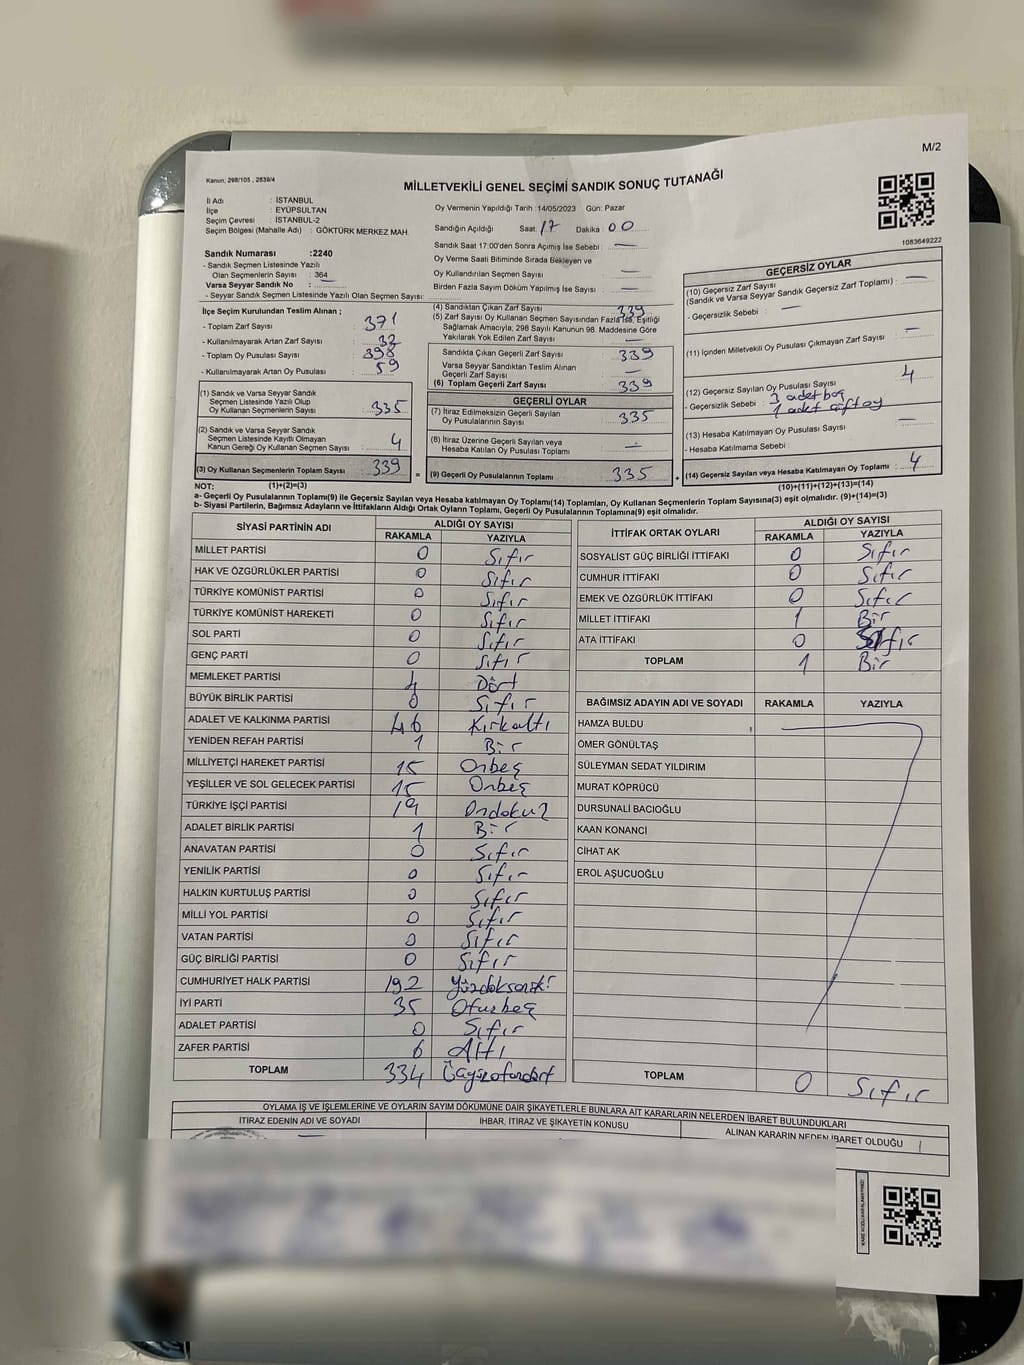 M/2
Kanun; 298/105 , 2839/4
MİLLETVEKİLİ GENEL SEÇİMİ SANDIK SONUÇ TUTANAĞI
İl Adı : İSTANBUL
İlçe : EYÜPSULTAN
Seçim Çevresi : İSTANBUL-2
Seçim Bölgesi (Mahalle Adı) : GÖKTÜRK MERKEZ MAH.
Sandık Numarası :2240
- Sandık Seçmen Listesinde Yazılı
Olan Seçmenlerin Sayısı : 364
Varsa Seyyar Sandık No : —
- Seyyar Sandık Seçmen Listesinde Yazılı Olan Seçmen Sayısı:
İlçe Seçim Kurulundan Teslim Alınan ;
- Toplam Zarf Sayısı : 371
- Kullanılmayarak Artan Zarf Sayısı : 32
- Toplam Oy Pusulası Sayısı : 398
- Kullanılmayarak Artan Oy Pusulası : 59
(1) Sandık ve Varsa Seyyar Sandık
Seçmen Listesinde Yazılı Olup
Oy Kullanan Seçmenlerin Sayısı : 335
(2) Sandık ve Varsa Seyyar Sandık
Seçmen Listesinde Kayıtlı Olmayan
Kanun Gereği Oy Kullanan Seçmen Sayısı : 4
(3) Oy Kullanan Seçmenlerin Toplam Sayısı : 339
Oy Vermenin Yapıldığı Tarih :14/05/2023 Gün: Pazar
Sandığın Açıldığı Saat: 17 Dakika : 00
Sandık Saat 17:00'den Sonra Açılmış İse Sebebi : —
Oy Verme Saati Bitiminde Sırada Bekleyen ve
Oy Kullandırılan Seçmen Sayısı : —
Birden Fazla Sayım Döküm Yapılmış İse Sayısı : —
(4) Sandıktan Çıkan Zarf Sayısı : 339
(5) Zarf Sayısı Oy Kullanan Seçmen Sayısından Fazla İse, Eşitliği
Sağlamak Amacıyla; 298 Sayılı Kanunun 98. Maddesine Göre
Yakılarak Yok Edilen Zarf Sayısı : —
Sandıkta Çıkan Geçerli Zarf Sayısı : 339
Varsa Seyyar Sandıktan Teslim Alınan
Geçerli Zarf Sayısı : —
(6) Toplam Geçerli Zarf Sayısı : 339
GEÇERLİ OYLAR
(7) İtiraz Edilmeksizin Geçerli Sayılan
Oy Pusulalarının Sayısı : 335
(8) İtiraz Üzerine Geçerli Sayılan veya
Hesaba Katılan Oy Pusulası Toplamı : —
= (9) Geçerli Oy Pusulalarının Toplamı : 335
1083649222
GEÇERSİZ OYLAR
(10) Geçersiz Zarf Sayısı
(Sandık ve Varsa Seyyar Sandık Geçersiz Zarf Toplamı) : —
- Geçersizlik Sebebi : —
(11) İçinden Milletvekili Oy Pusulası Çıkmayan Zarf Sayısı : —
(12) Geçersiz Sayılan Oy Pusulası Sayısı : 4
- Geçersizlik Sebebi : 3 adet boş
1 adet çift oy
(13) Hesaba Katılmayan Oy Pusulası Sayısı : —
- Hesaba Katılmama Sebebi :
+ (14) Geçersiz Sayılan veya Hesaba Katılmayan Oy Toplamı : 4
NOT: (1)+(2)=(3) (10)+(11)+(12)+(13)=(14)
a- Geçerli Oy Pusulalarının Toplamı(9) ile Geçersiz Sayılan veya Hesaba katılmayan Oy Toplamı(14) Toplamları, Oy Kullanan Seçmenlerin Toplam Sayısına(3) eşit olmalıdır. (9)+(14)=(3)
b- Siyasi Partilerin, Bağımsız Adayların ve İttifakların Aldığı Ortak Oyların Toplamı, Geçerli Oy Pusulalarının Toplamına(9) eşit olmalıdır.
SİYASİ PARTİNİN ADI ALDIĞI OY SAYISI
RAKAMLA YAZIYLA
MİLLET PARTİSİ 0 Sıfır
HAK VE ÖZGÜRLÜKLER PARTİSİ 0 Sıfır
TÜRKİYE KOMÜNİST PARTİSİ 0 Sıfır
TÜRKİYE KOMÜNİST HAREKETİ 0 Sıfır
SOL PARTİ 0 Sıfır
GENÇ PARTİ 0 Sıfır
MEMLEKET PARTİSİ 4 Dört
BÜYÜK BİRLİK PARTİSİ 0 Sıfır
ADALET VE KALKINMA PARTİSİ 46 Kırkaltı
YENİDEN REFAH PARTİSİ 1 Bir
MİLLİYETÇİ HAREKET PARTİSİ 15 Onbeş
YEŞİLLER VE SOL GELECEK PARTİSİ 15 Onbeş
TÜRKİYE İŞÇİ PARTİSİ 19 Ondokuz
ADALET BİRLİK PARTİSİ 1 Bir
ANAVATAN PARTİSİ 0 Sıfır
YENİLİK PARTİSİ 0 Sıfır
HALKIN KURTULUŞ PARTİSİ 0 Sıfır
MİLLİ YOL PARTİSİ 0 Sıfır
VATAN PARTİSİ 0 Sıfır
GÜÇ BİRLİĞİ PARTİSİ 0 Sıfır
CUMHURİYET HALK PARTİSİ 192 Yüzdoksaniki
İYİ PARTİ 35 Otuzbeş
ADALET PARTİSİ 0 Sıfır
ZAFER PARTİSİ 6 Altı
TOPLAM 334 Üçyüzotuzdört
İTTİFAK ORTAK OYLARI ALDIĞI OY SAYISI
RAKAMLA YAZIYLA
SOSYALİST GÜÇ BİRLİĞİ İTTİFAKI 0 Sıfır
CUMHUR İTTİFAKI 0 Sıfır
EMEK VE ÖZGÜRLÜK İTTİFAKI 0 Sıfır
MİLLET İTTİFAKI 1 Bir
ATA İTTİFAKI 0 Sıfır
TOPLAM 1 Bir
BAĞIMSIZ ADAYIN ADI VE SOYADI RAKAMLA YAZIYLA
HAMZA BULDU
ÖMER GÖNÜLTAŞ
SÜLEYMAN SEDAT YILDIRIM
MURAT KÖPRÜCÜ
DURSUNALİ BACIOĞLU
KAAN KONANCİ
CİHAT AK
EROL AŞUCUOĞLU
TOPLAM 0 Sıfır
OYLAMA İŞ VE İŞLEMLERİNE VE OYLARIN SAYIM DÖKÜMÜNE DAİR ŞİKAYETLERLE BUNLARA AİT KARARLARIN NELERDEN İBARET BULUNDUKLARI
İTİRAZ EDENİN ADI VE SOYADI İHBAR, İTİRAZ VE ŞİKAYETİN KONUSU ALINAN KARARIN NEDEN İBARET OLDUĞU